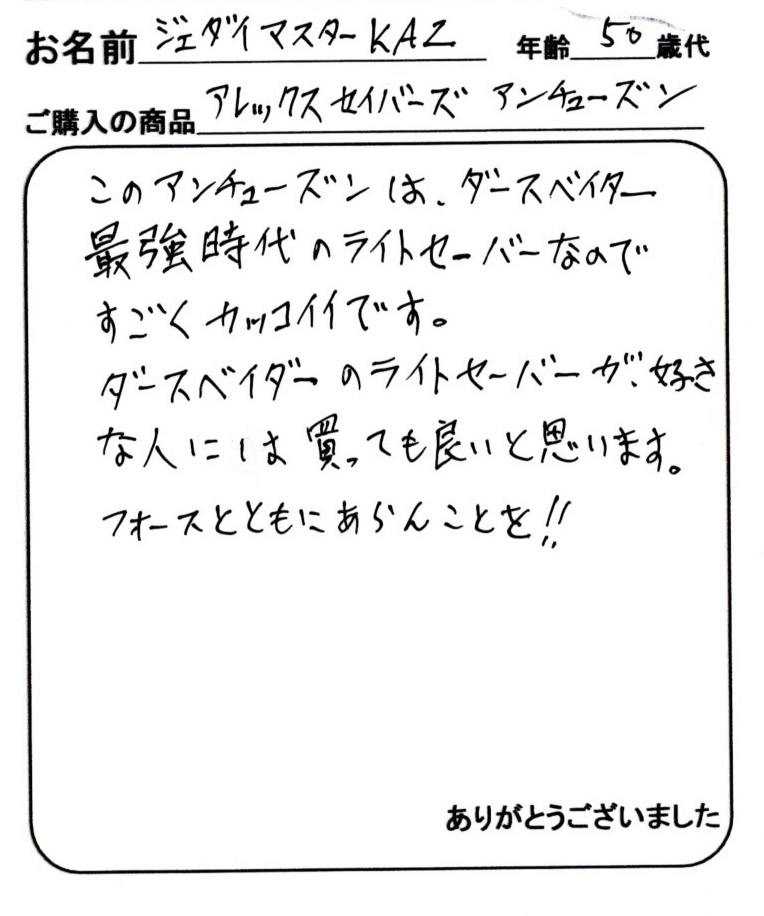 お名前 ジェダイマスターKAZ 年齢 50 歳代
ご購入の商品 アレックスセイバーズ アンチューズン
このアンチューズンは、ダースベイター
最強時代のライトセーバーなので
すごくカッコイイです。
ダースベイダーのライトセーバーが、好き
な人には買っても良いと思います。
フォースとともにあらんことを!!
ありがとうございました